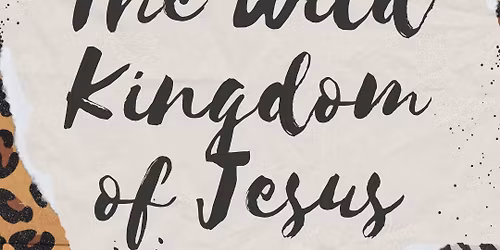 The Wild
Kingdom
of Jesus